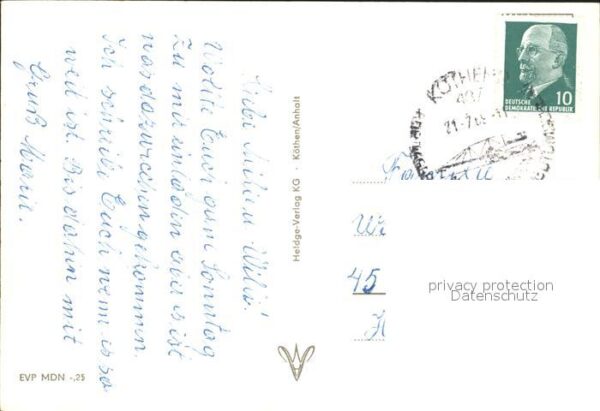 Liebe Milli u. Willi!
Wollte Euch am Sonntag
zu mir einladen aber es ist
was dazwischen gekommen.
Ich schreibe Euch wenn es so
weit ist. Bis dahin mit
Gruß Marie.
EVP MDN -,25
Heldge-Verlag KG · Köthen/Anhalt
DEUTSCHE
DEMOKRATISCHE REPUBLIK
10
KÖTHEN
Familie
45
privacy protection
Datenschutz